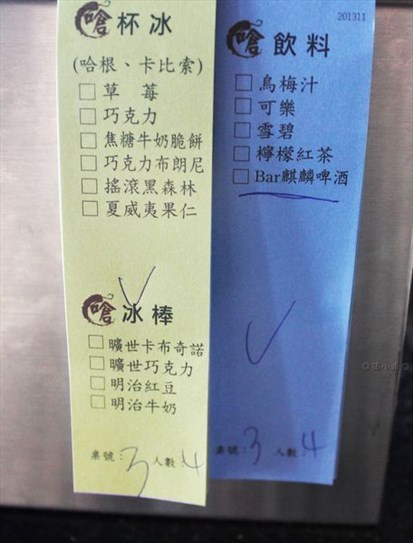 嗆 杯冰
(哈根、卡比索)
□ 草 莓
□ 巧克力
□ 焦糖牛奶脆餅
□ 巧克力布朗尼
□ 搖滾黑森林
□ 夏威夷果仁
嗆 冰棒
□ 曠世卡布奇諾
□ 曠世巧克力
□ 明治紅豆
□ 明治牛奶
桌號：3 人數：4
201311
嗆 飲料
□ 烏梅汁
□ 可樂
□ 雪碧
□ 檸檬紅茶
□ Bar麒麟啤酒
桌號：3 人數：4